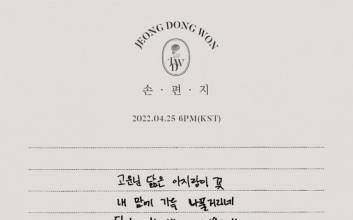 JEONG DONG WON
JDW
손·편·지
2022.04.25 6PM(KST)
고운님 닮은 아지랑이 꽃
내 맘에 가득 나풀거리네